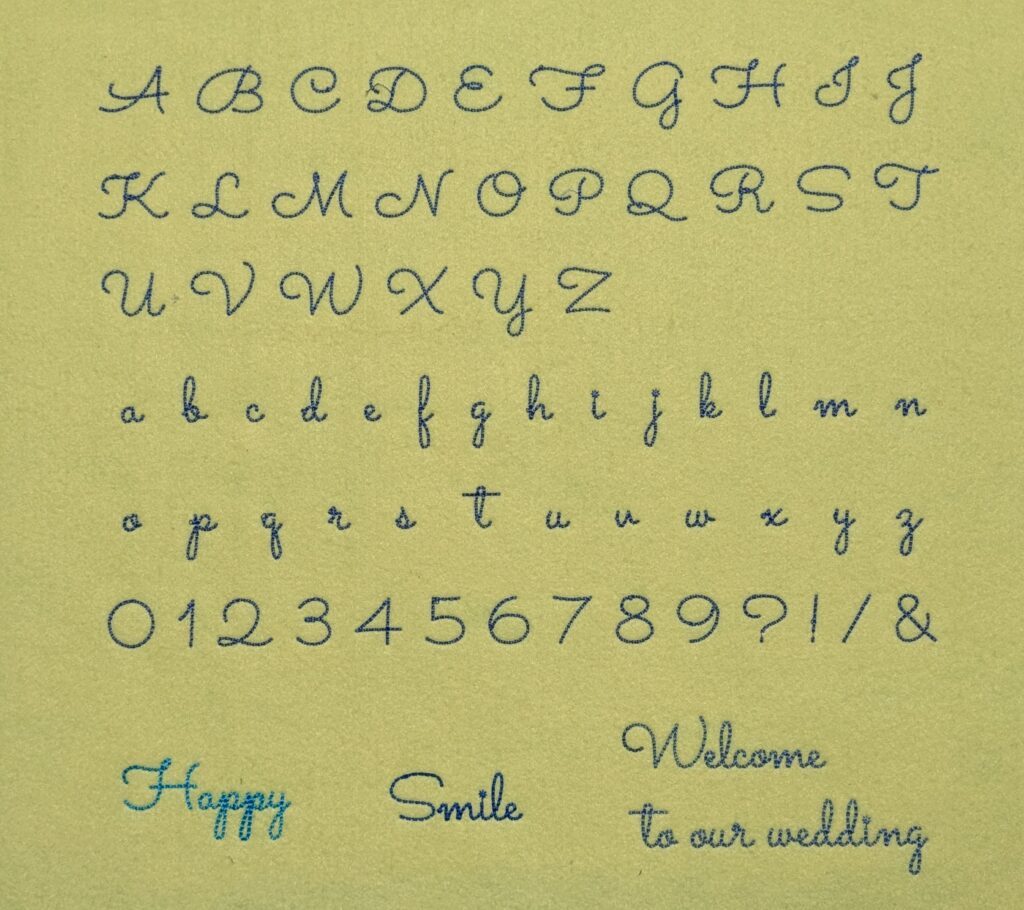 A B C D E F G H I J
K L M N O P Q R S T
U V W X Y Z
a b c d e f g h i j k l m n
o p q r s t u v w x y z
0 1 2 3 4 5 6 7 8 9 ? ! / &
Happy
Smile
Welcome
to our wedding